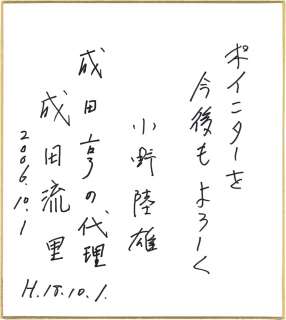 ポインターを
今後もよろしく
小野陸雄
成田亨の代理
成田流里
2006.10.1
H.18.10.1.